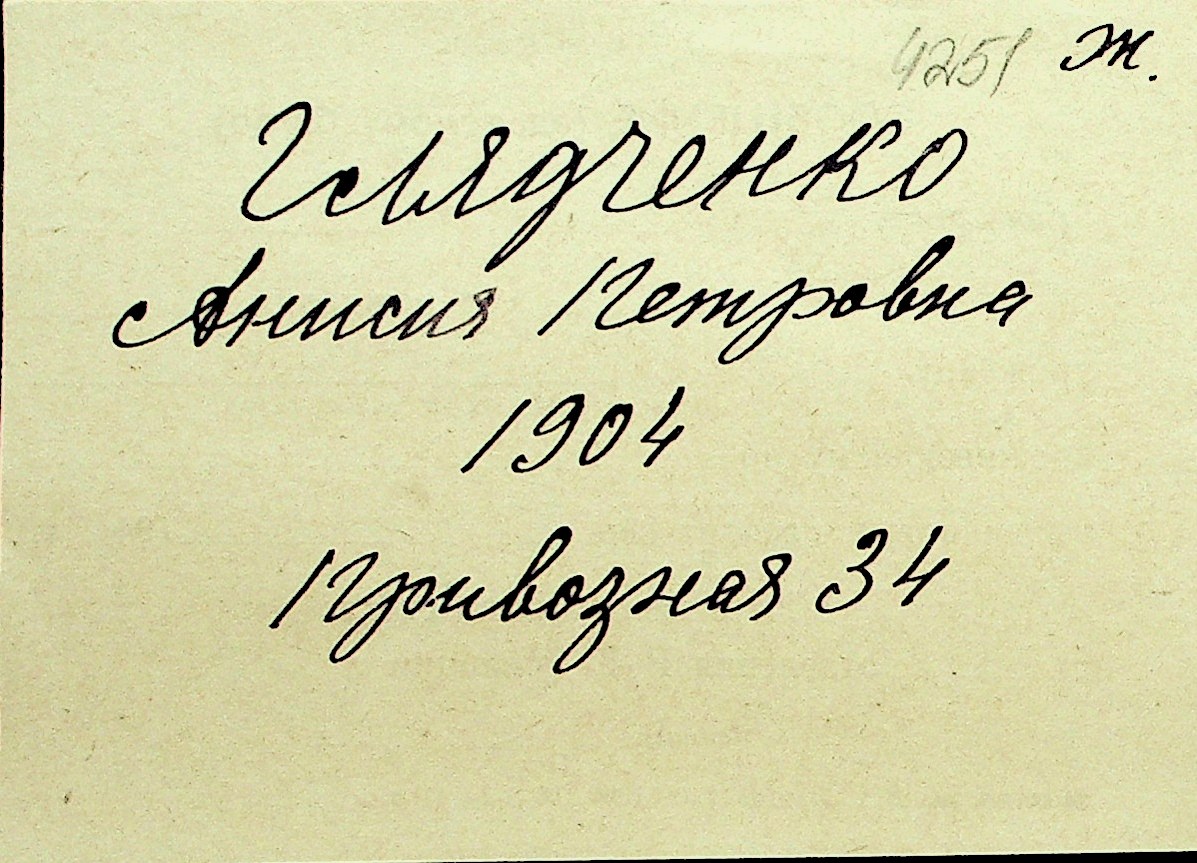 4251 Ж.
Глядченко
Анисия Петровна
1904
Привозная 34